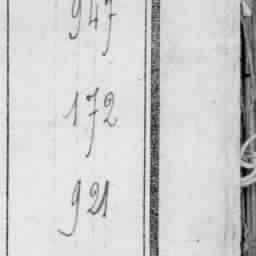 947
172
921